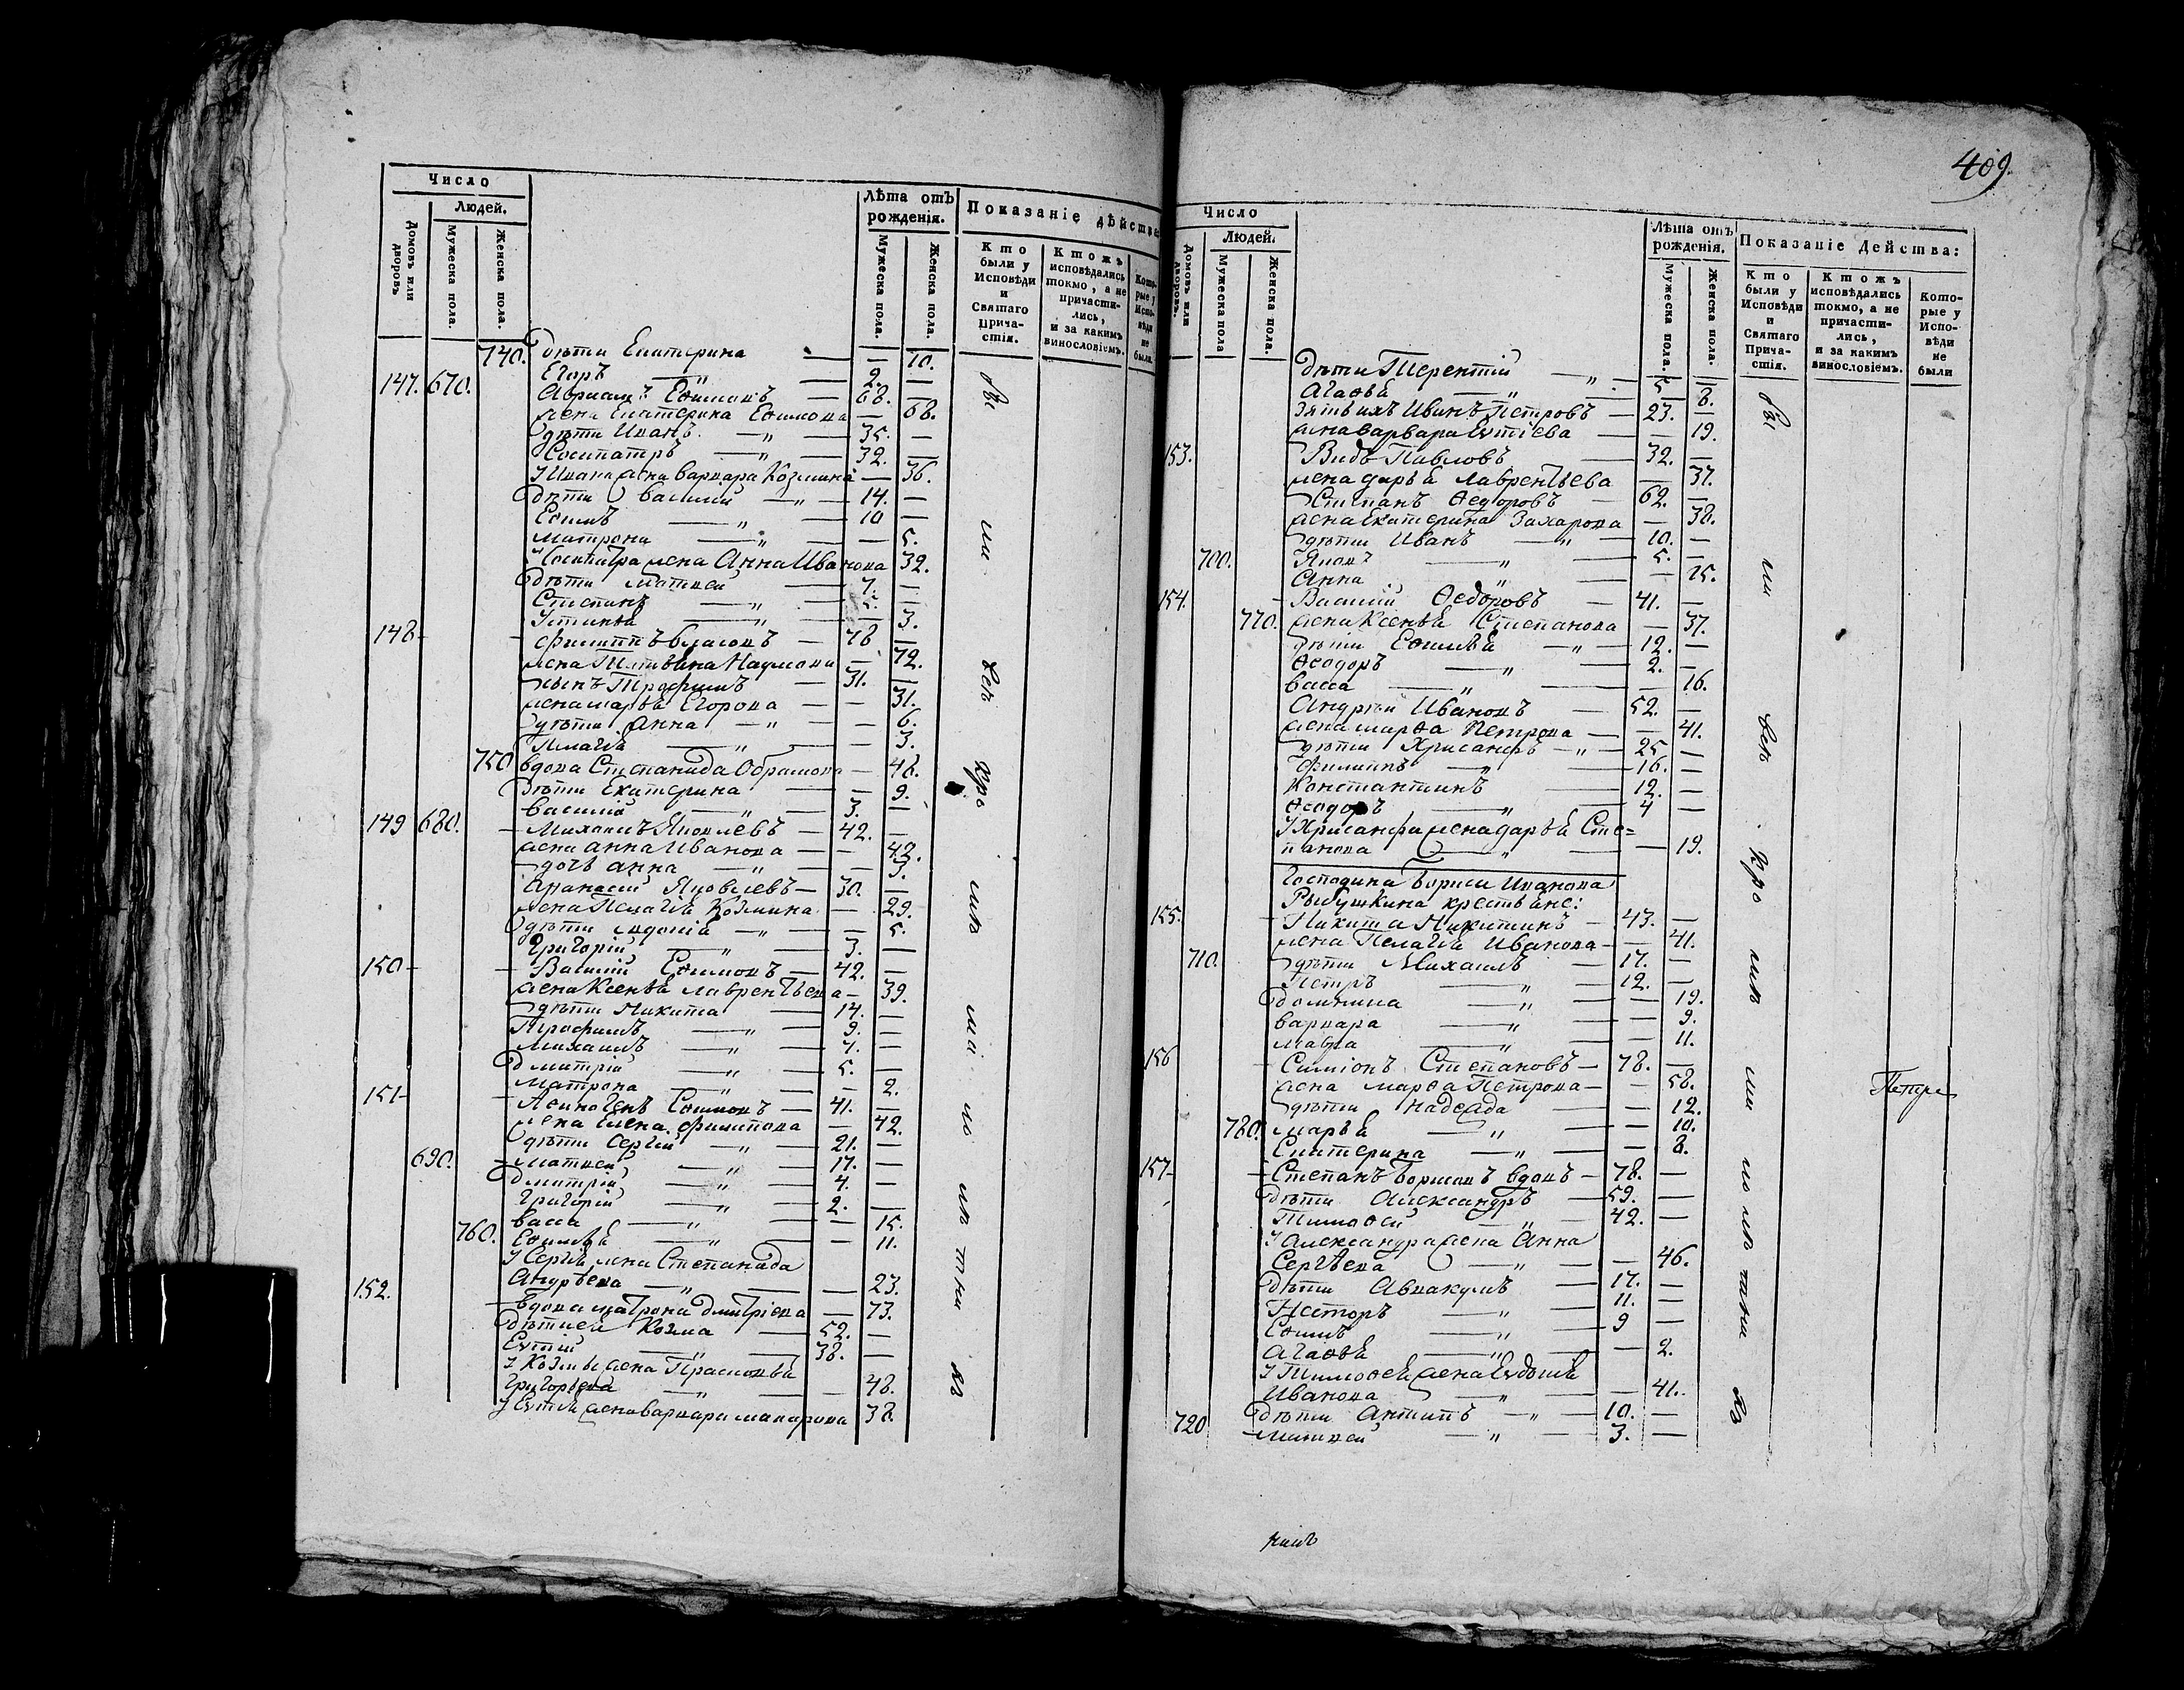 Число
Людей.
Домовъ или дворовъ
Мужеска пола.
Женска пола.
Лѣта отъ рожденія.
Мужеска пола.
Женска пола.
Показаніе дѣйства
Кто были у Исповѣди и Святаго Прича-стія.
Ктожъ исповѣдались токмо, а не причасти-лись, и за какимъ винословіемъ.
Кото-рые у Испо-вѣди не были.
740. дѣти Екатерина — — 10.
Егоръ — „ — 2. —
147. 670. Авраамъ Ефимовъ — 68. —
жена Екатерина Ефимова — 68.
дѣти Иванъ — „ — 35. —
Сосипатръ — „ — 32. —
У Ивана жена варвара Козмина — 36.
дѣти василий — „ — 14. —
Ефимъ — „ — 10 —
матрона — „ — — 5.
У Сосипатра жена Анна Иванова 32.
дѣти матвей — 7. —
Степанъ — „ — 5. —
Устинья — „ — — 3.
148 — филиппъ власовъ — 78 —
жена Татьяна Наумова — 72.
сынъ Трофимъ — 31. —
жена марья Егорова — — 31.
дѣти Анна — „ — — 6.
— „ — — 3.
750 вдова Степанида Обрамова — 48.
дѣти Екатерина — — 9.
василий — „ — 3. —
149 680. — Михаилъ Яковлевъ — 42. —
жена анна Иванова — — 42.
дочь анна — „ — — 3.
Афанасий Яковлевъ — 30. —
жена Пелагія Козмина — 29.
дѣти — „ — — 5.
Григорій — „ — 3. —
150 — Василий Ефимовъ — 42. —
жена Ксенья лаврентьева — 39.
дѣти Никита — 14. —
Трофимъ — „ — 9. —
михаилъ — „ — 7. —
дмитрій — „ — 5. —
Матрона — „ — — 2.
151 — Ефимовъ — 41. —
жена Елена филипова — 42.
дѣти Сергий — „ — 21. —
690. — матвей — „ — 17. —
дмитрій — „ — 4. —
Григорій — „ — 2. —
васса — „ — — 15.
760. Ефимья — „ — — 11.
У Сергия жена Степанида
Андрѣева — „ — — 23.
152. — вдова матрона дмитріева — 73.
дѣти ея Козма — 52. —
Евтій — „ — 38. —
У Козмы жена Прасковья
Григорьева — „ — — 48.
У Евтія жена варвара макарова 38.
бы
ли
всѣ
кро
мѣ
ма
ло
лѣ
тны
хъ
409.
Число
Людей.
Домовъ или дворовъ.
Мужеска пола
Женска пола.
Лѣта отъ рожденія.
Мужеска пола.
Женска пола.
Показаніе Действа:
Кто были у Исповѣди и Святаго Прича-стія.
Ктожъ исповѣдались токмо, а не причасти-лись, и за какимъ винословіемъ.
Кото-рые у Испо-вѣди не были
дѣти Терентій — „ — 5 —
Агафья — „ — — 8.
зять ихъ Иванъ Петровъ — 23. —
жена варвара Евтіева — — 19.
153. Павловъ — 32. —
жена дарья лаврентьева — 37.
Степанъ Федоровъ — 62. —
жена Екатерина Захарова — 38.
дѣти Иванъ — „ — 10. —
700. Яковъ — „ — 5. —
Анна — „ — — 15.
154. — Василий Ѳедоровъ — 41. —
770. жена Ксенья Степанова — 37.
дѣти Ефимья — „ — 12. —
Ѳеодоръ — „ — 2. —
васса — „ — — 16.
Андрей Ивановъ — 52. —
жена марфа Петрова — — 41.
дѣти Хрисанфъ — „ — 25 —
Филиппъ — „ — 16. —
Константинъ — 12. —
Ѳеодоръ — „ — 4 —
У Хрисанфа жена дарья Сте=
панова — „ — — 19.
Господина Бориса Иванова
Рыбушкина крестьяне:
155. — Никита Никитинъ — 43. —
жена Пелагия Иванова — — 41.
710. дѣти Михаилъ — 17. —
Петръ — „ — 12. —
домника — „ — — 19.
варвара — „ — — 9.
мавра — „ — — 11.
156 — Симіонъ Степановъ — 78. —
жена марфа Петрова — — 58.
дѣти надежда — — 12.
780. марья — „ — — 10.
Екатерина — „ — — 8.
157 — Степанъ Борисовъ вдовъ — 78. —
дѣти Александръ — 59. —
Тимофей — „ — 42. —
У Александра жена Анна
Сергѣева — „ — — 46.
дѣти Аввакумъ — 17. —
Несторъ — „ — 11. —
Ефимъ — „ — 9 —
Агафья — „ — — 2.
У Тимофея жена Евдокия
Иванова — „ — — 41.
720 дѣти Антипъ — „ — 10. —
матвей — „ — 3. —
бы
ли
всѣ
кро
мѣ
ма
ло
лѣ
тны
хъ
Петре